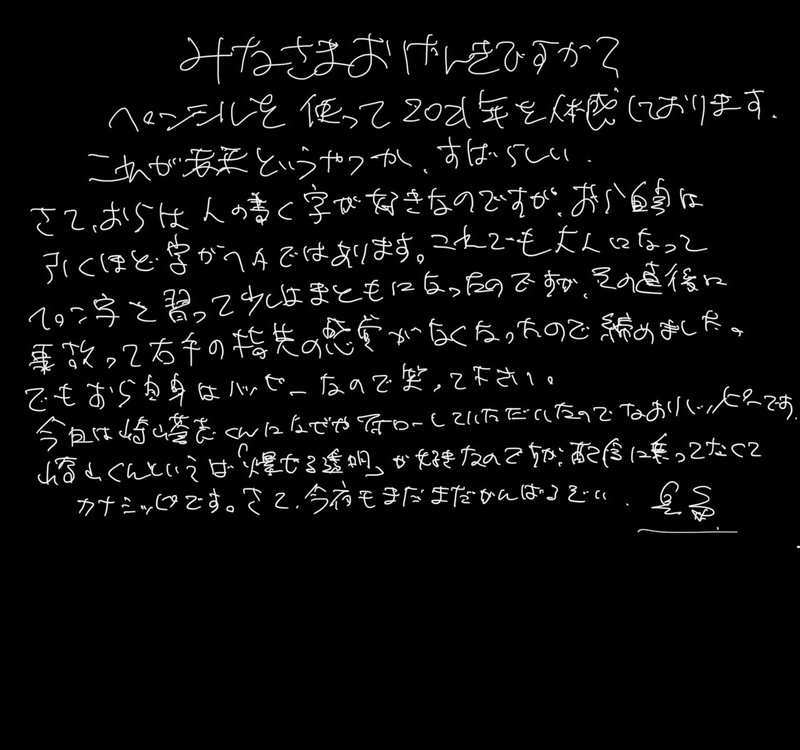 みなさまおげんきですか?
ペンシルを使って2021年を体感しております.
これが未来というやつか、すばらしい.
さて、おらは人の書く字が好きなのですが、おら自身は
引くほど字がヘタではあります。これでも大人になって
ペン字を習って少しはまともになったのですが、その直後に
事故って右手の指先の感覚がなくなったので締めました。
でもおら自身はハッピーなので笑って下さい。
今日は崎山蒼志くんになぜかフォローしていただいたのでなおハッピーです.
崎山くんといえば「爆ぜる透明」が好きなのですが、配信に乗ってなくて
カナシッピです。さて、今夜もまだまだがんばるぞい.